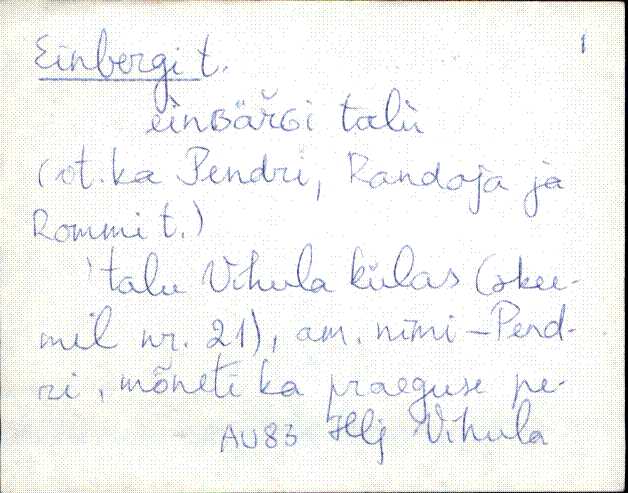 Einbergi t. 1
èinʙäřɢi talù
(vt. ka Pendri, Randoja ja
Rommi t.)
'talu Vihula külas (skee-
mil nr. 21), am. nimi – Pend-
ri, mõneti ka praeguse pe-
AU83 Hlj Vihula